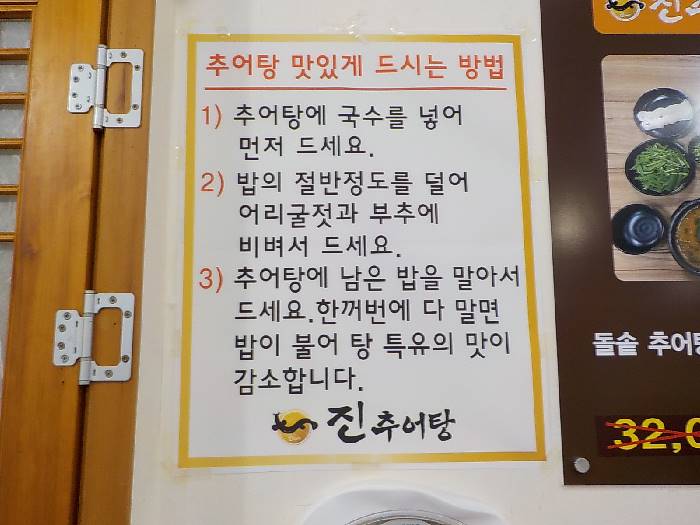 추어탕 맛있게 드시는 방법
1) 추어탕에 국수를 넣어
먼저 드세요.
2) 밥의 절반정도를 덜어
어리굴젓과 부추에
비벼서 드세요.
3) 추어탕에 남은 밥을 말아서
드세요.한꺼번에 다 말면
밥이 불어 탕 특유의 맛이
감소합니다.
진추어탕
돌솥 추어탕
32,0